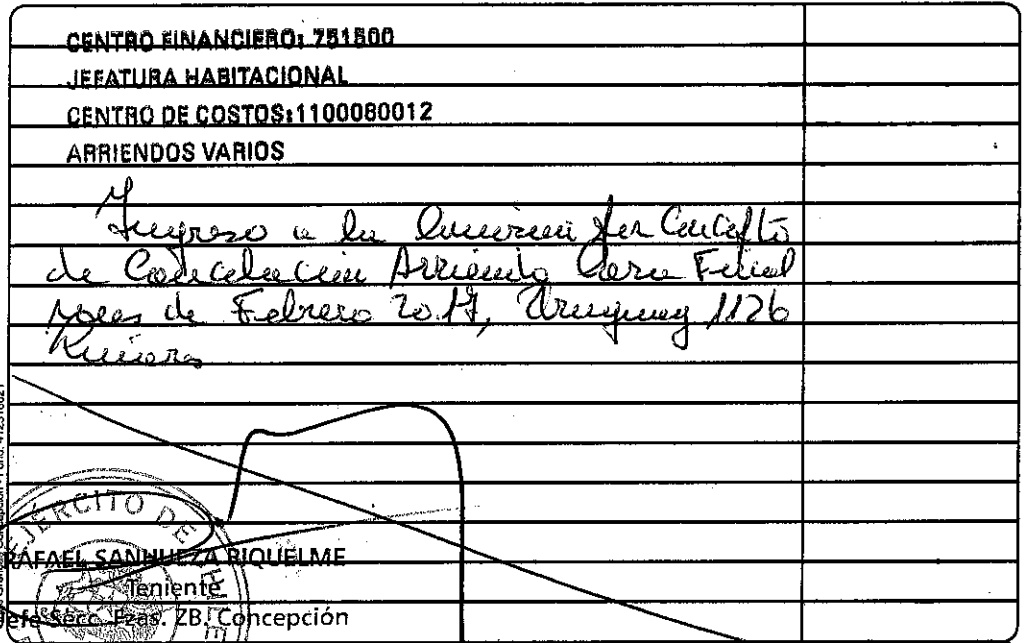 CENTRO FINANCIERO: 751500
JEFATURA HABITACIONAL
CENTRO DE COSTOS:1100080012
ARRIENDOS VARIOS
Ingreso a la por Concepto
de Cancelacion Arriendo Casa Fiscal
mes de Febrero 2017, Uruguay 1126
EJÉRCITO DE CHILE
RAFAEL SANHUEZA RIQUELME
Teniente
Jefe Secc. Fzas. ZB. Concepción